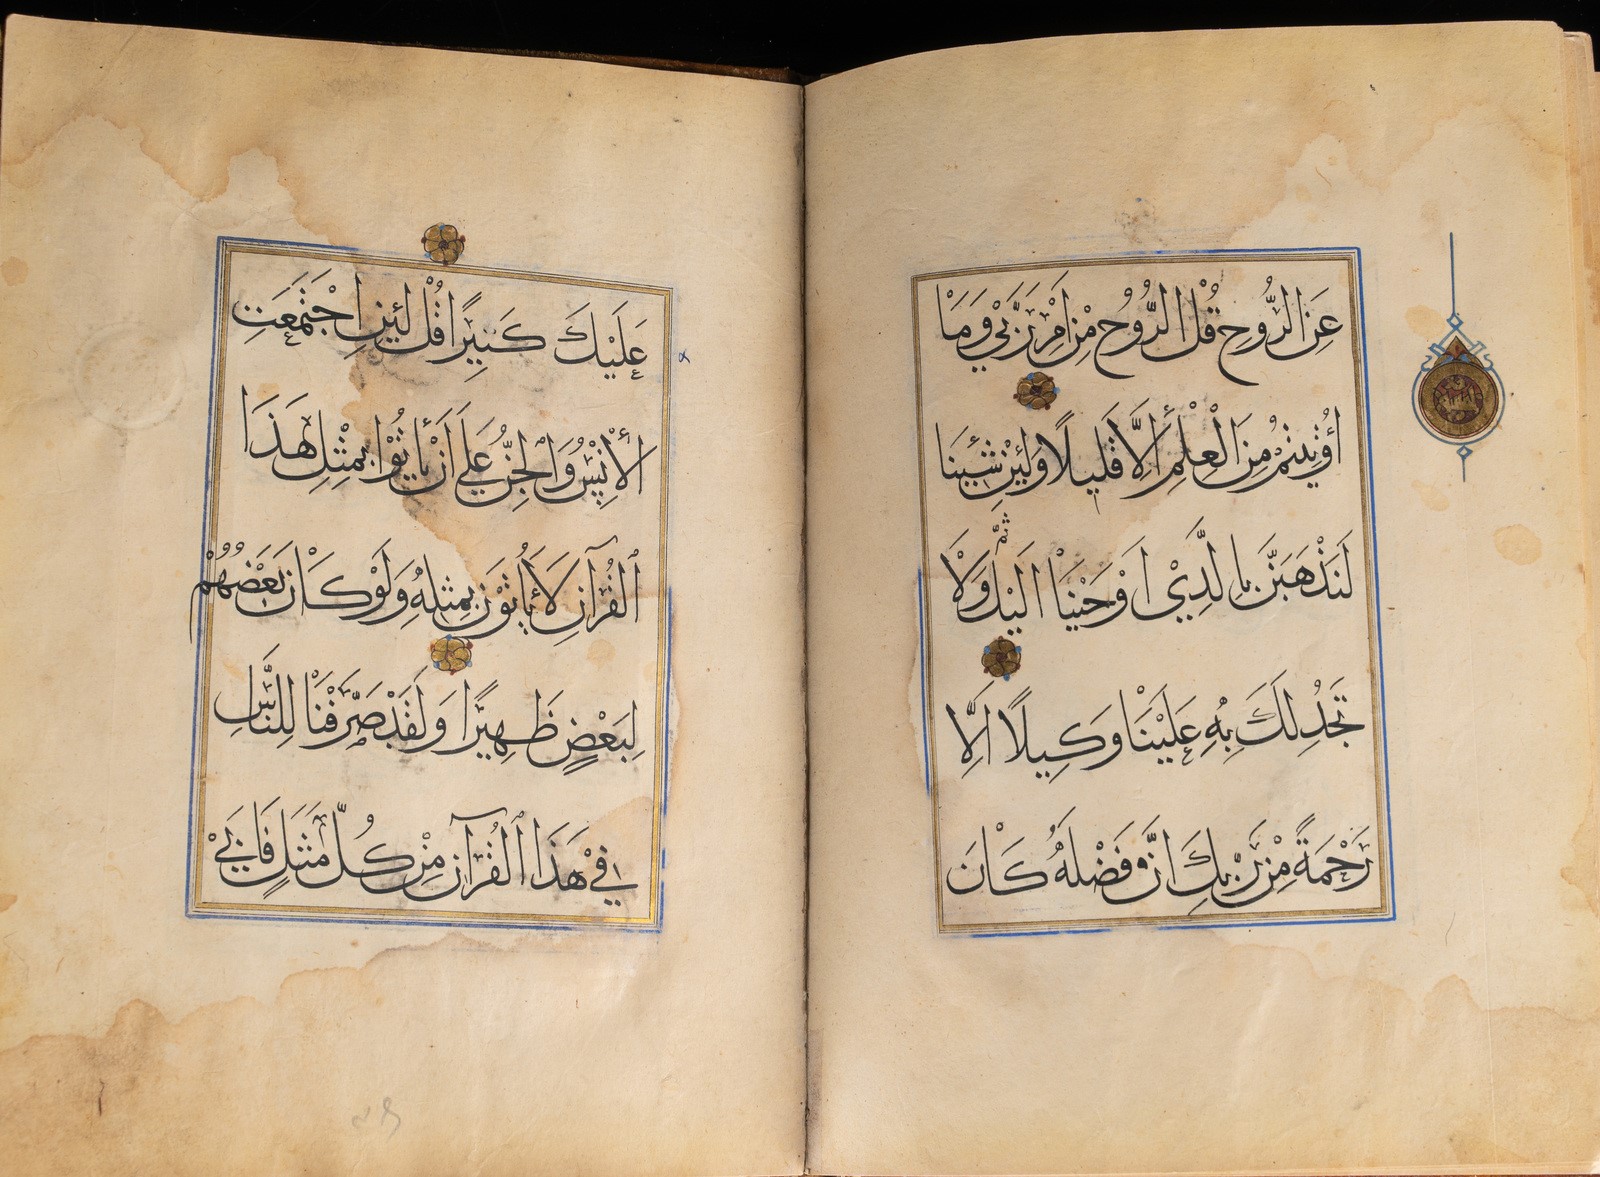 عَنِ الرُّوحِ قُلِ الرُّوحُ مِنْ اَمْرِ رَبِّيْ وَمَاْ
اُوْتِيْتُمْ مِنَ الْعِلْمِ اِلَّا قَلِيْلًا وَلَئِنْ شِئْنَا
لَنَذْهَبَنَّ بِالَّذِيْ اَوْحَيْنَاْ اِلَيْكَ ثُمَّ لَاْ
تَجِدُ لَكَ بِهِ عَلَيْنَاْ وَكِيلًا اِلَّا
رَحْمَةً مِنْ رَبِّكَ اِنَّ فَضْلَهُ كَاْنَ
عَلَيْكَ كَبِيْرًا قُلْ لَئِنِ اجْتَمَعَتِ
الْأِنْسُ وَالْجِنُّ عَلَى اَنْ يَأْتُوْا بِمِثْلِ هَذَا
الْقُرْآنِ لَا يَأْتُوْنَ بِمِثْلِهِ وَلَوْ كَاْنَ بَعْضُهُمْ
لِبَعْضٍ ظَهِيْرًا وَلَقَدْ صَرَّفْنَاْ لِلنَّاسِ
فِيْ هَذَا الْقُرْآنِ مِنْ كُلِّ مَثَلٍ فَاَبَىْ